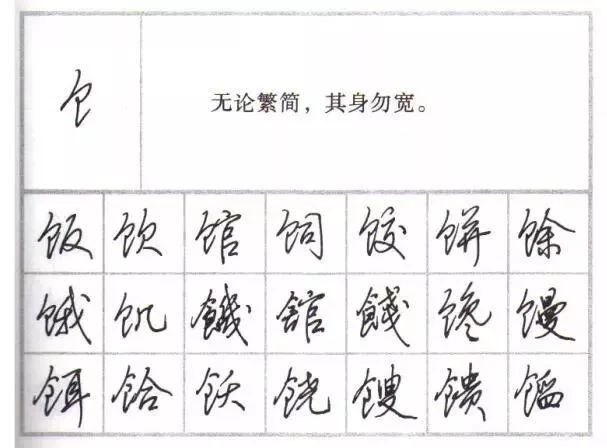 饣 无论繁简，其身勿宽。
饭 饮 馆 饲 饺 饼 馀
饿 饥 饑 館 餞 馋 馒
饵 饸 饫 饶 馊 馈